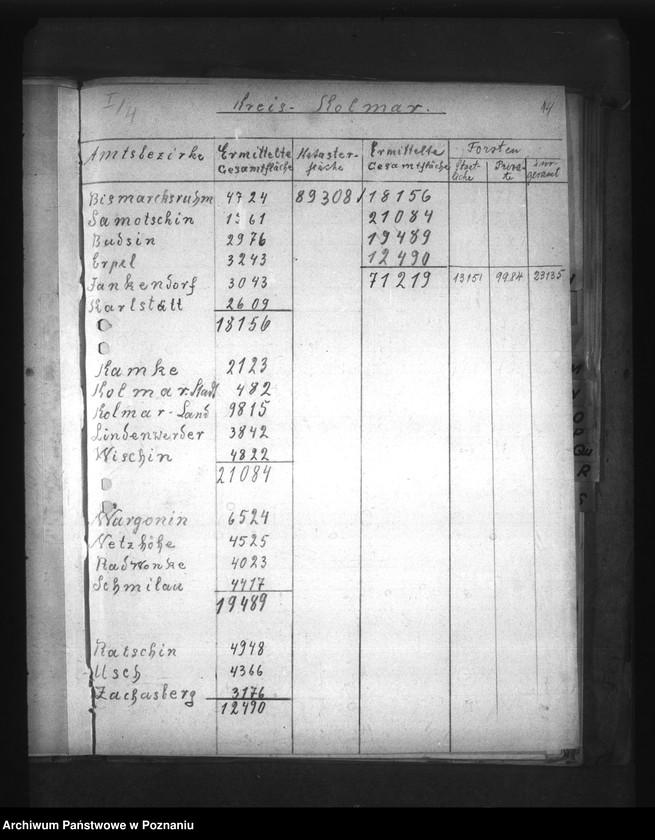 I/4
Kreis- Kolmar.
14
Amtsbezirke Ermittelte Gesamtfläche Kataster-fläche Ermittelte Gesamtfläche Forsten Staat-liche Priva-te
Bismarcksruhm 4724 89308 18156
Samotschin 1561 21084
Budsin 2976 19489
Erpel 3243 12490
Jankendorf 3043 71219 13151 9984 23135
Karlstätt 2609
18156
Kamke 2123
Kolmar-Stadt 482
Kolmar-Land 9815
Lindenwerder 3842
Wischin 4822
21084
Wargonin 6524
Netzhöhe 4525
Radwonke 4023
Schmilau 4417
19489
Ratschin 4948
Usch 4366
Zachasberg 3176
12490
M
N
O
P
Qu
R
S
Archiwum Państwowe w Poznaniu